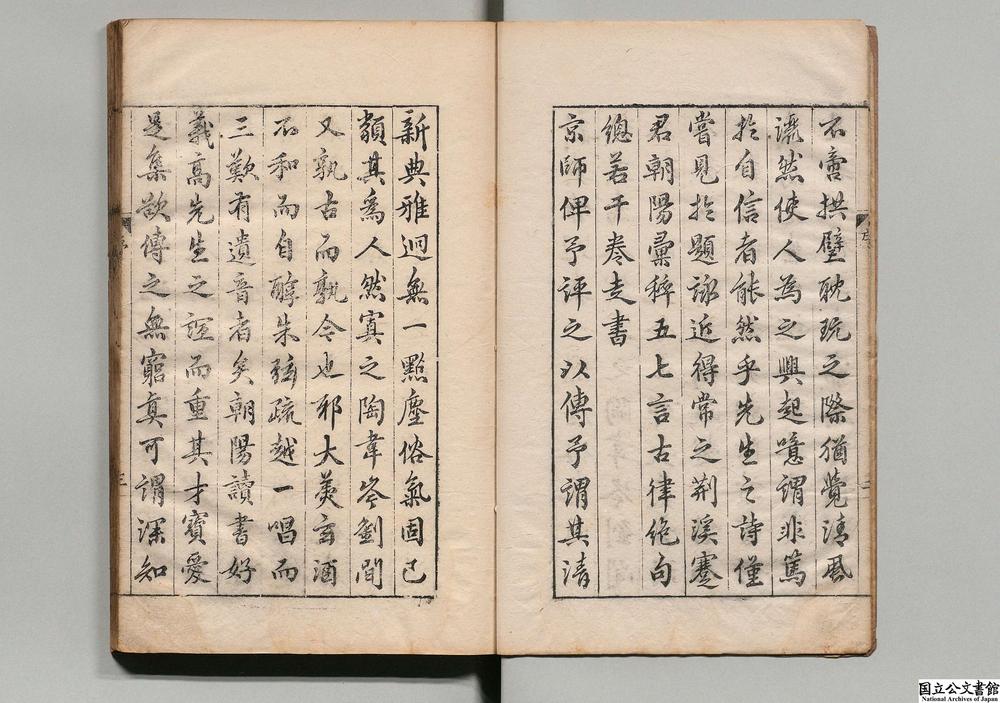 不啻拱璧耽玩之際猶覺清風
灑然使人為之興起噫謂非篤
於自信者能然乎先生之詩僅
嘗見於題詠近得常之荆溪蹇
君朝陽彙稡五七言古律絶句
總若干卷走書
京師俾予評之以傳予謂其清
新典雅迥無一點塵俗氣固已
類其為人然寘之陶韋岑劉間
又孰古而孰今也邪大羹玄酒
不和而自醇朱弦疏越一唱而
三歎有遺音者矣朝陽讀書好
義高先生之誼而重其才寳愛
是集欲傳之無窮真可謂深知
序
二
三
国立公文書館
National Archives of Japan